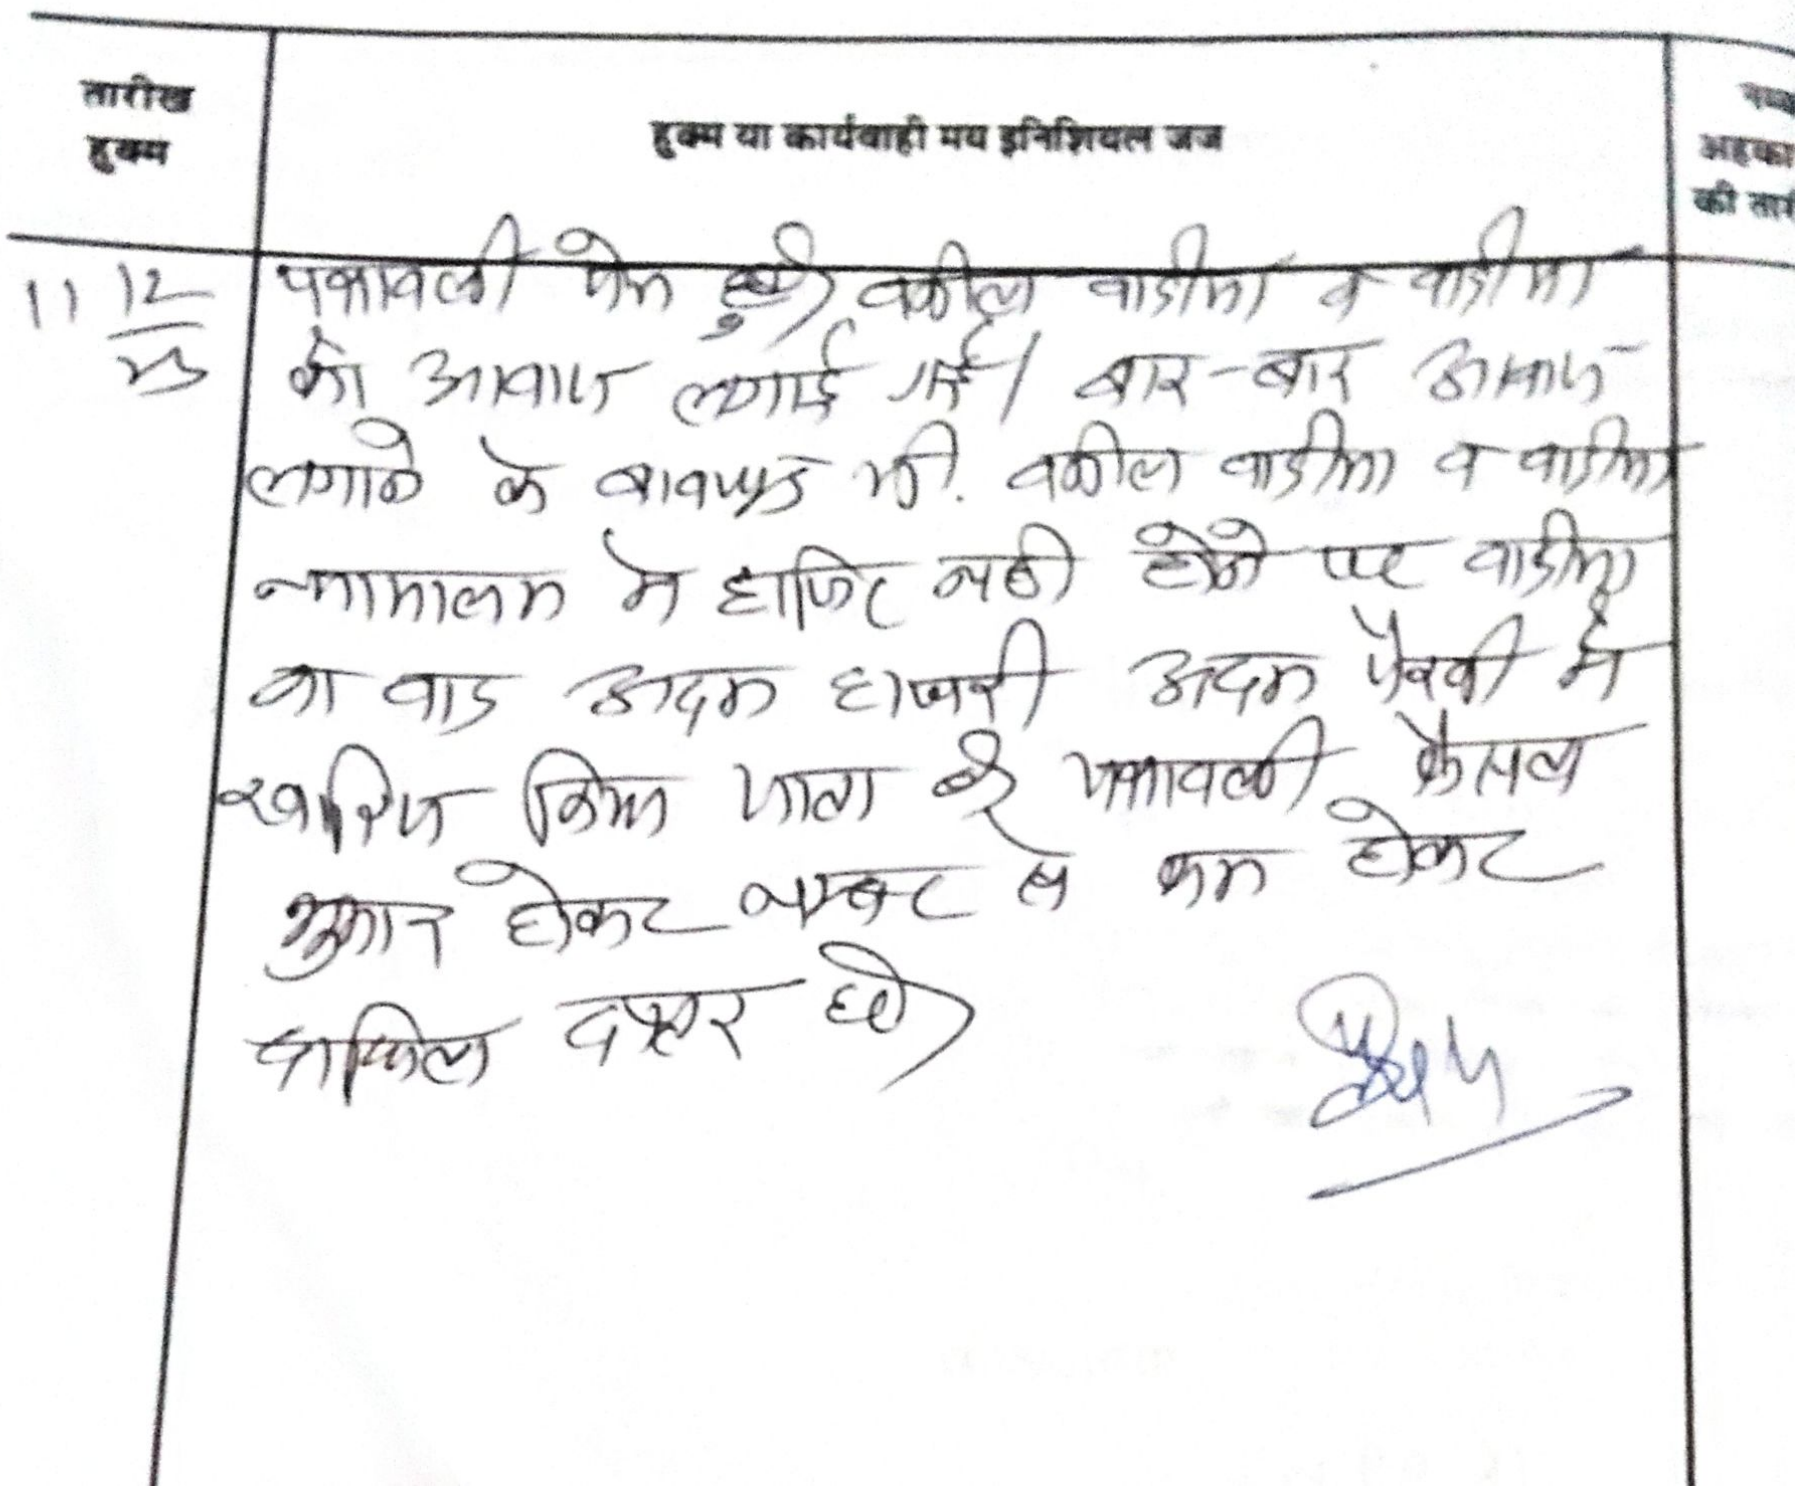 तारीख
हुक्म
हुक्म या कार्यवाही मय इनिशियल जज
अहका
की तारी
11/12
पत्रावली पेश हुई। वकील वादीया व वादीया
को आवाज लगाई गई। बार-बार आवाज
लगाने के बावजूद भी वकील वादीया व वादीया
न्यायालय मे हाजिर नही होने पर वादीया
का वाद अदम हाजरी अदम पैरवी मे
खारिज किया जाता है। पत्रावली फैसल
शुमार होकर नम्बर से कम होकर
दाखिल दफ्तर हो।